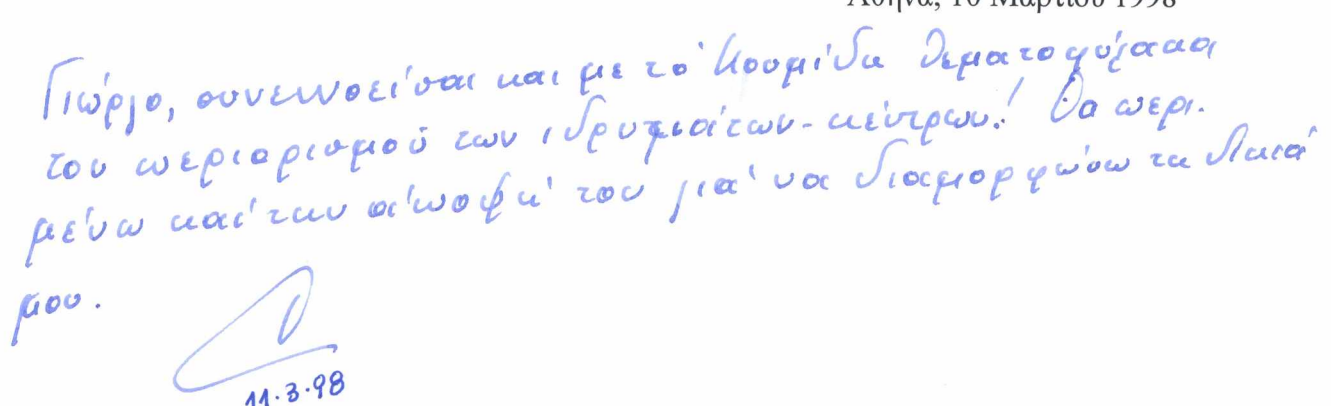 Αθήνα, 10 Μαρτίου 1998
Γιώργο, συνεννοείσαι και με το Κουμίδη θεματοφύλακα
του περιορισμού των ιδρυμάτων-κέντρων! Θα περι-
μένω καί την άποψή του γιά να διαμορφώσω τη δικιά
μου.
11.3.98